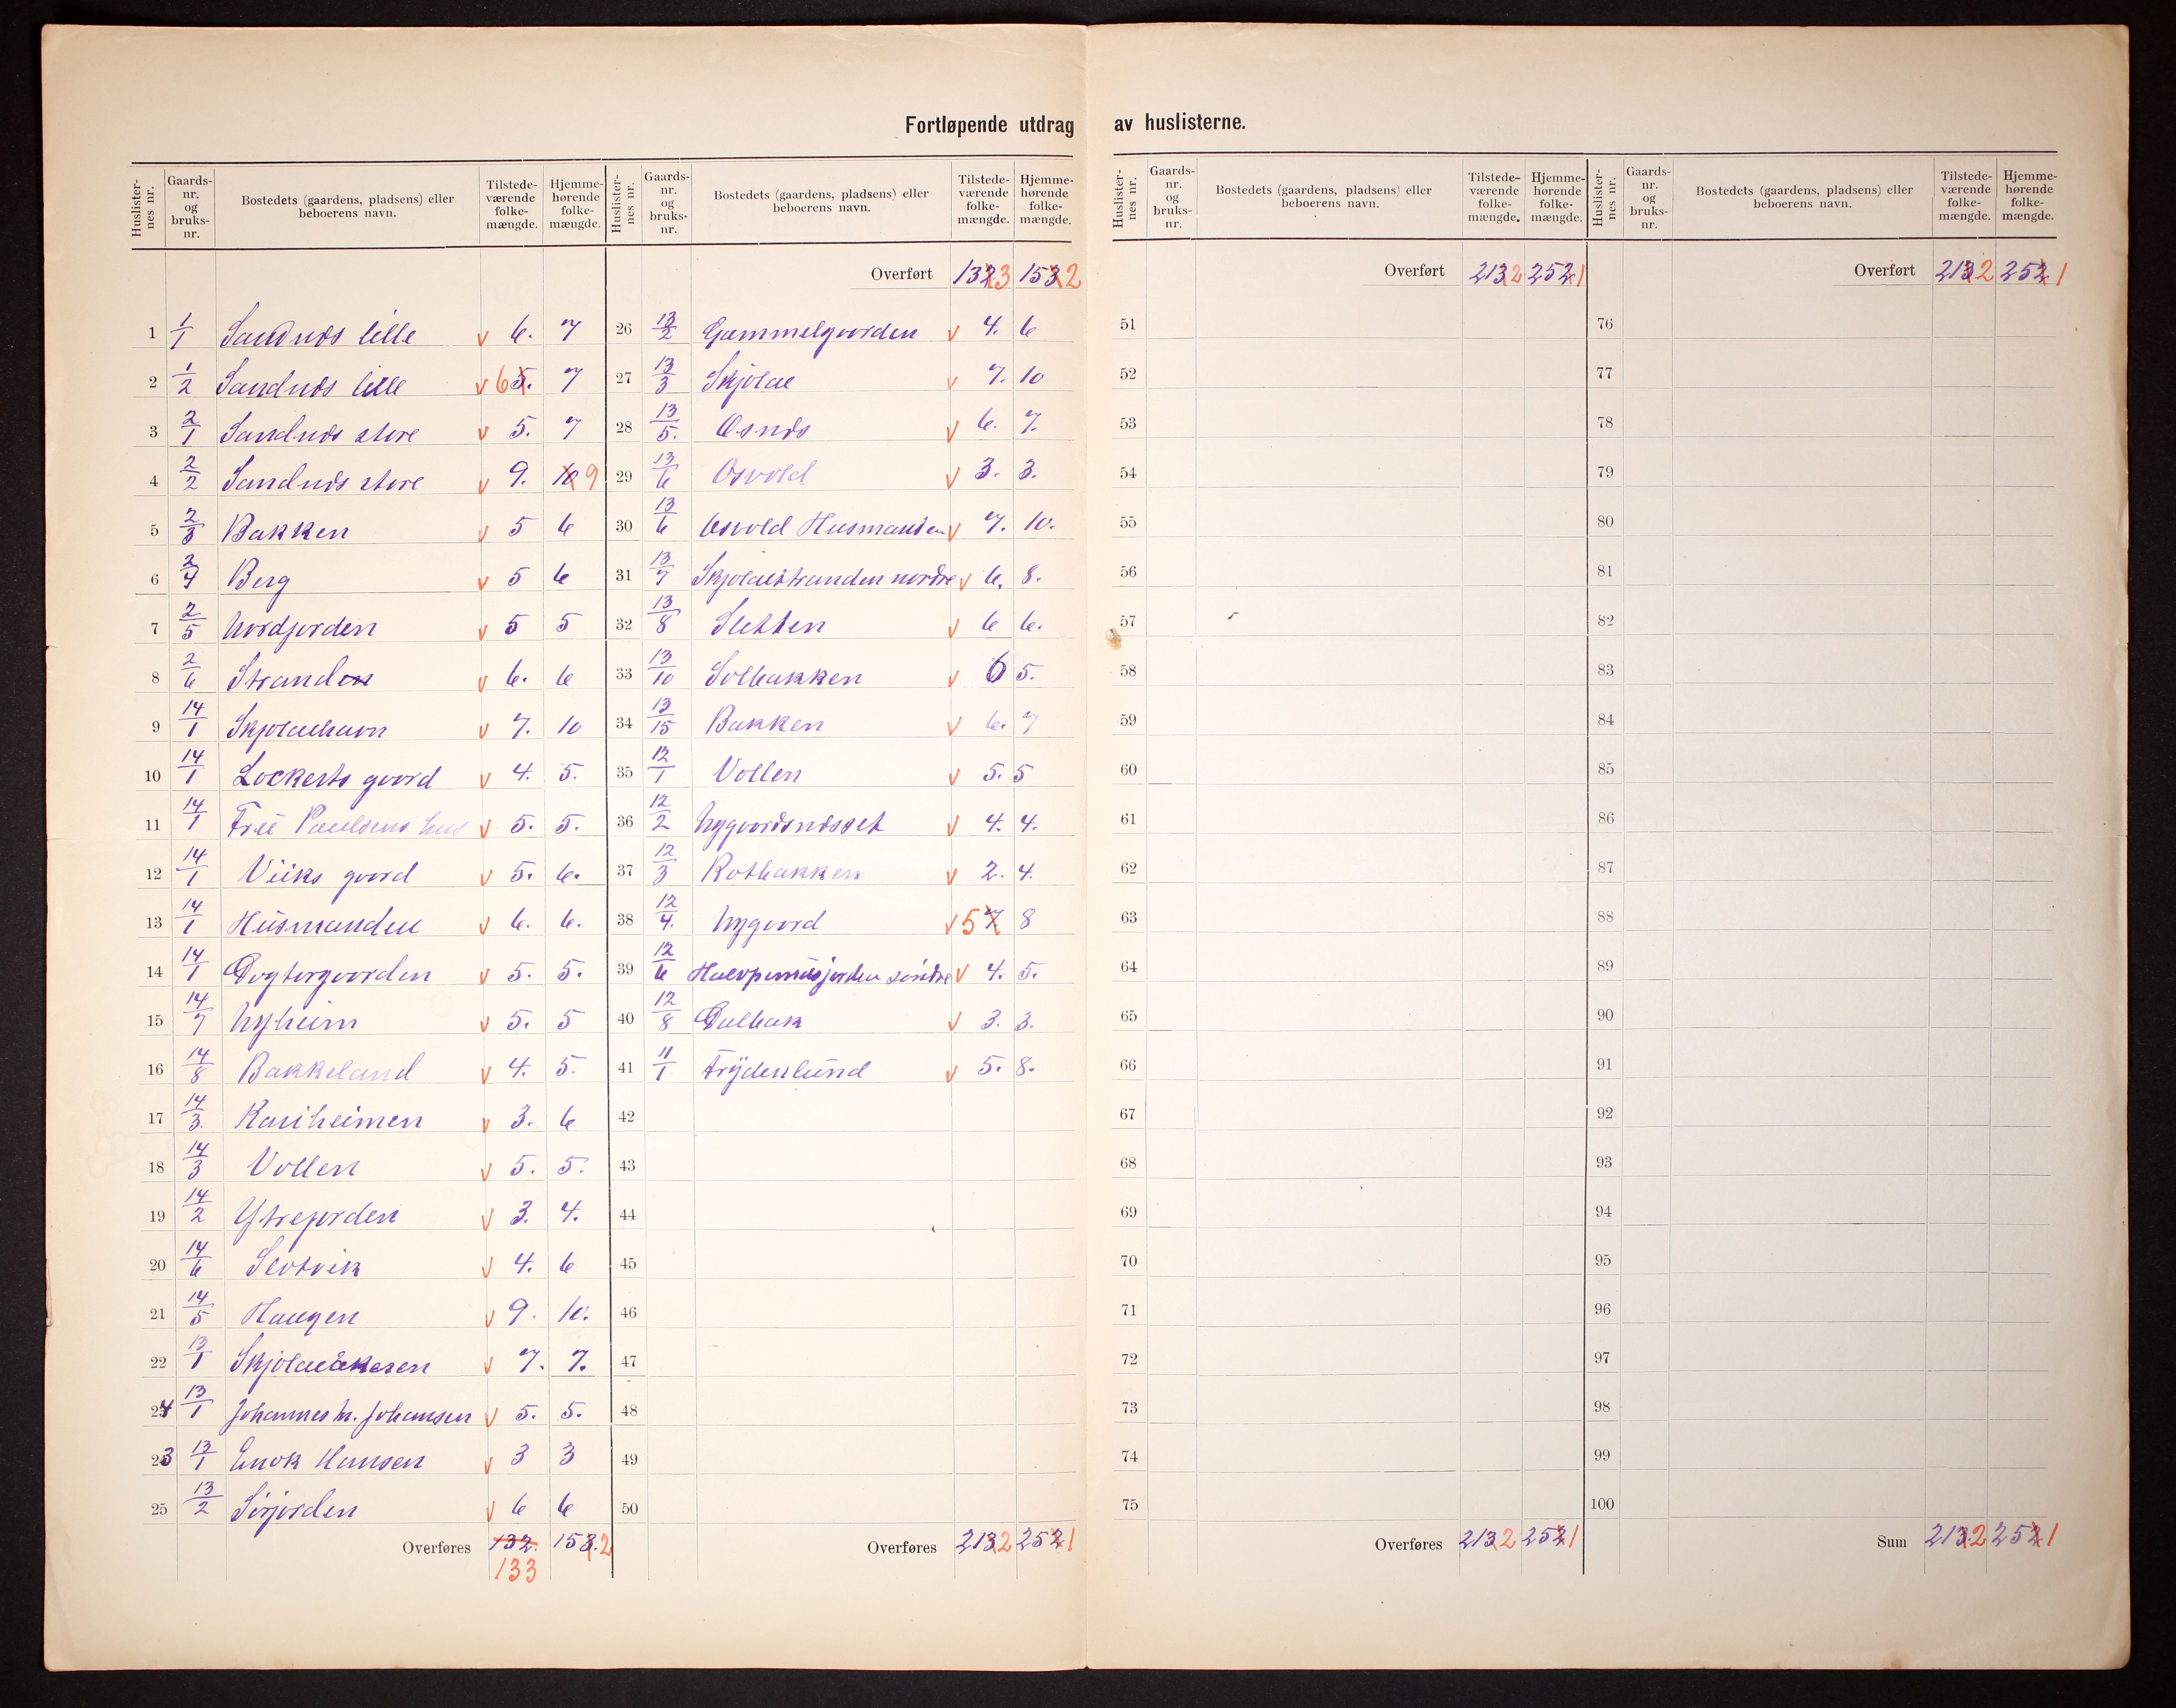 Fortløpende utdrag av huslisterne.
Huslisternes nr. Gaardsnr. og bruksnr. Bostedets (gaardens, pladsens) eller beboerens navn. Tilstedeværende folkemængde. Hjemmehørende folkemængde.
1 1/1 Sandnæs lille v 6. 7
2 1/2 Sandnæs lille v 6 5. 7
3 2/1 Sandnæs store v 5. 7
4 2/2 Sandnæs store v 9. 10 9
5 2/3 Bakken v 5 6
6 2/4 Berg v 5 6
7 2/5 Nordjorden v 5 5
8 2/6 Stranden v 6. 6
9 14/1 Skjolaehavn v 7. 10
10 14/1 Lockerts goord v 4. 5.
11 14/1 Frü Paulsens hus v 5. 5.
12 14/1 Viiks goord v 5. 6.
13 14/1 Husmanden v 6. 6.
14 14/1 Dogtergoorden v 5. 5.
15 14/7 Nyheim v 5. 5
16 14/8 Bakkeland v 4. 5.
17 14/3 Kariheimen v 3. 6
18 14/3 Vollen v 5. 5.
19 14/2 Ytrejorden v 3. 4.
20 14/6 Slotvik v 4. 6
21 14/5 Haugen v 9. 10.
22 13/1 v 7. 7.
24 13/1 Johannes N. Johansen v 5. 5.
23 13/1 Enok Hansen v 3 3
25 13/2 Sörjorden v 6 6
Overføres 132. 133 153. 2
Huslisternes nr. Gaardsnr. og bruksnr. Bostedets (gaardens, pladsens) eller beboerens navn. Tilstedeværende folkemængde. Hjemmehørende folkemængde.
Overført 132 3 153 2
26 13/2 Gammelgoorden v 4. 6
27 13/3 Skjolae v 7. 10
28 13/5. Osnæs v 6. 7.
29 13/6 Osvold v 3. 3.
30 13/6 Osvold Husmanden v 7. 10.
31 13/7 Skjolaestranden nordre v 6. 8.
32 13/8 Sletten v 6 6.
33 13/10 Solbakken v 6 5.
34 13/15 Bakken v 6. 7
35 12/1 Vollen v 5. 5
36 12/2 Nygoordsnæsset v 4. 4.
37 12/3 Rotbakken v 2. 4.
38 12/4. Nygoord v 5 7 8
39 12/6 söndre v 4. 5.
40 12/8 Dalbak v 3. 3.
41 11/1 Frydenlund v 5. 8.
42
43
44
45
46
47
48
49
50
Overføres 213 2 252 1
Huslisternes nr. Gaardsnr. og bruksnr. Bostedets (gaardens, pladsens) eller beboerens navn. Tilstedeværende folkemængde. Hjemmehørende folkemængde.
Overført 213 2 252 1
51
52
53
54
55
56
57
58
59
60
61
62
63
64
65
66
67
68
69
70
71
72
73
74
75
Overføres 213 2 252 1
Huslisternes nr. Gaardsnr. og bruksnr. Bostedets (gaardens, pladsens) eller beboerens navn. Tilstedeværende folkemængde. Hjemmehørende folkemængde.
Overført 213 2 252 1
76
77
78
79
80
81
82
83
84
85
86
87
88
89
90
91
92
93
94
95
96
97
98
99
100
Sum 213 2 252 1